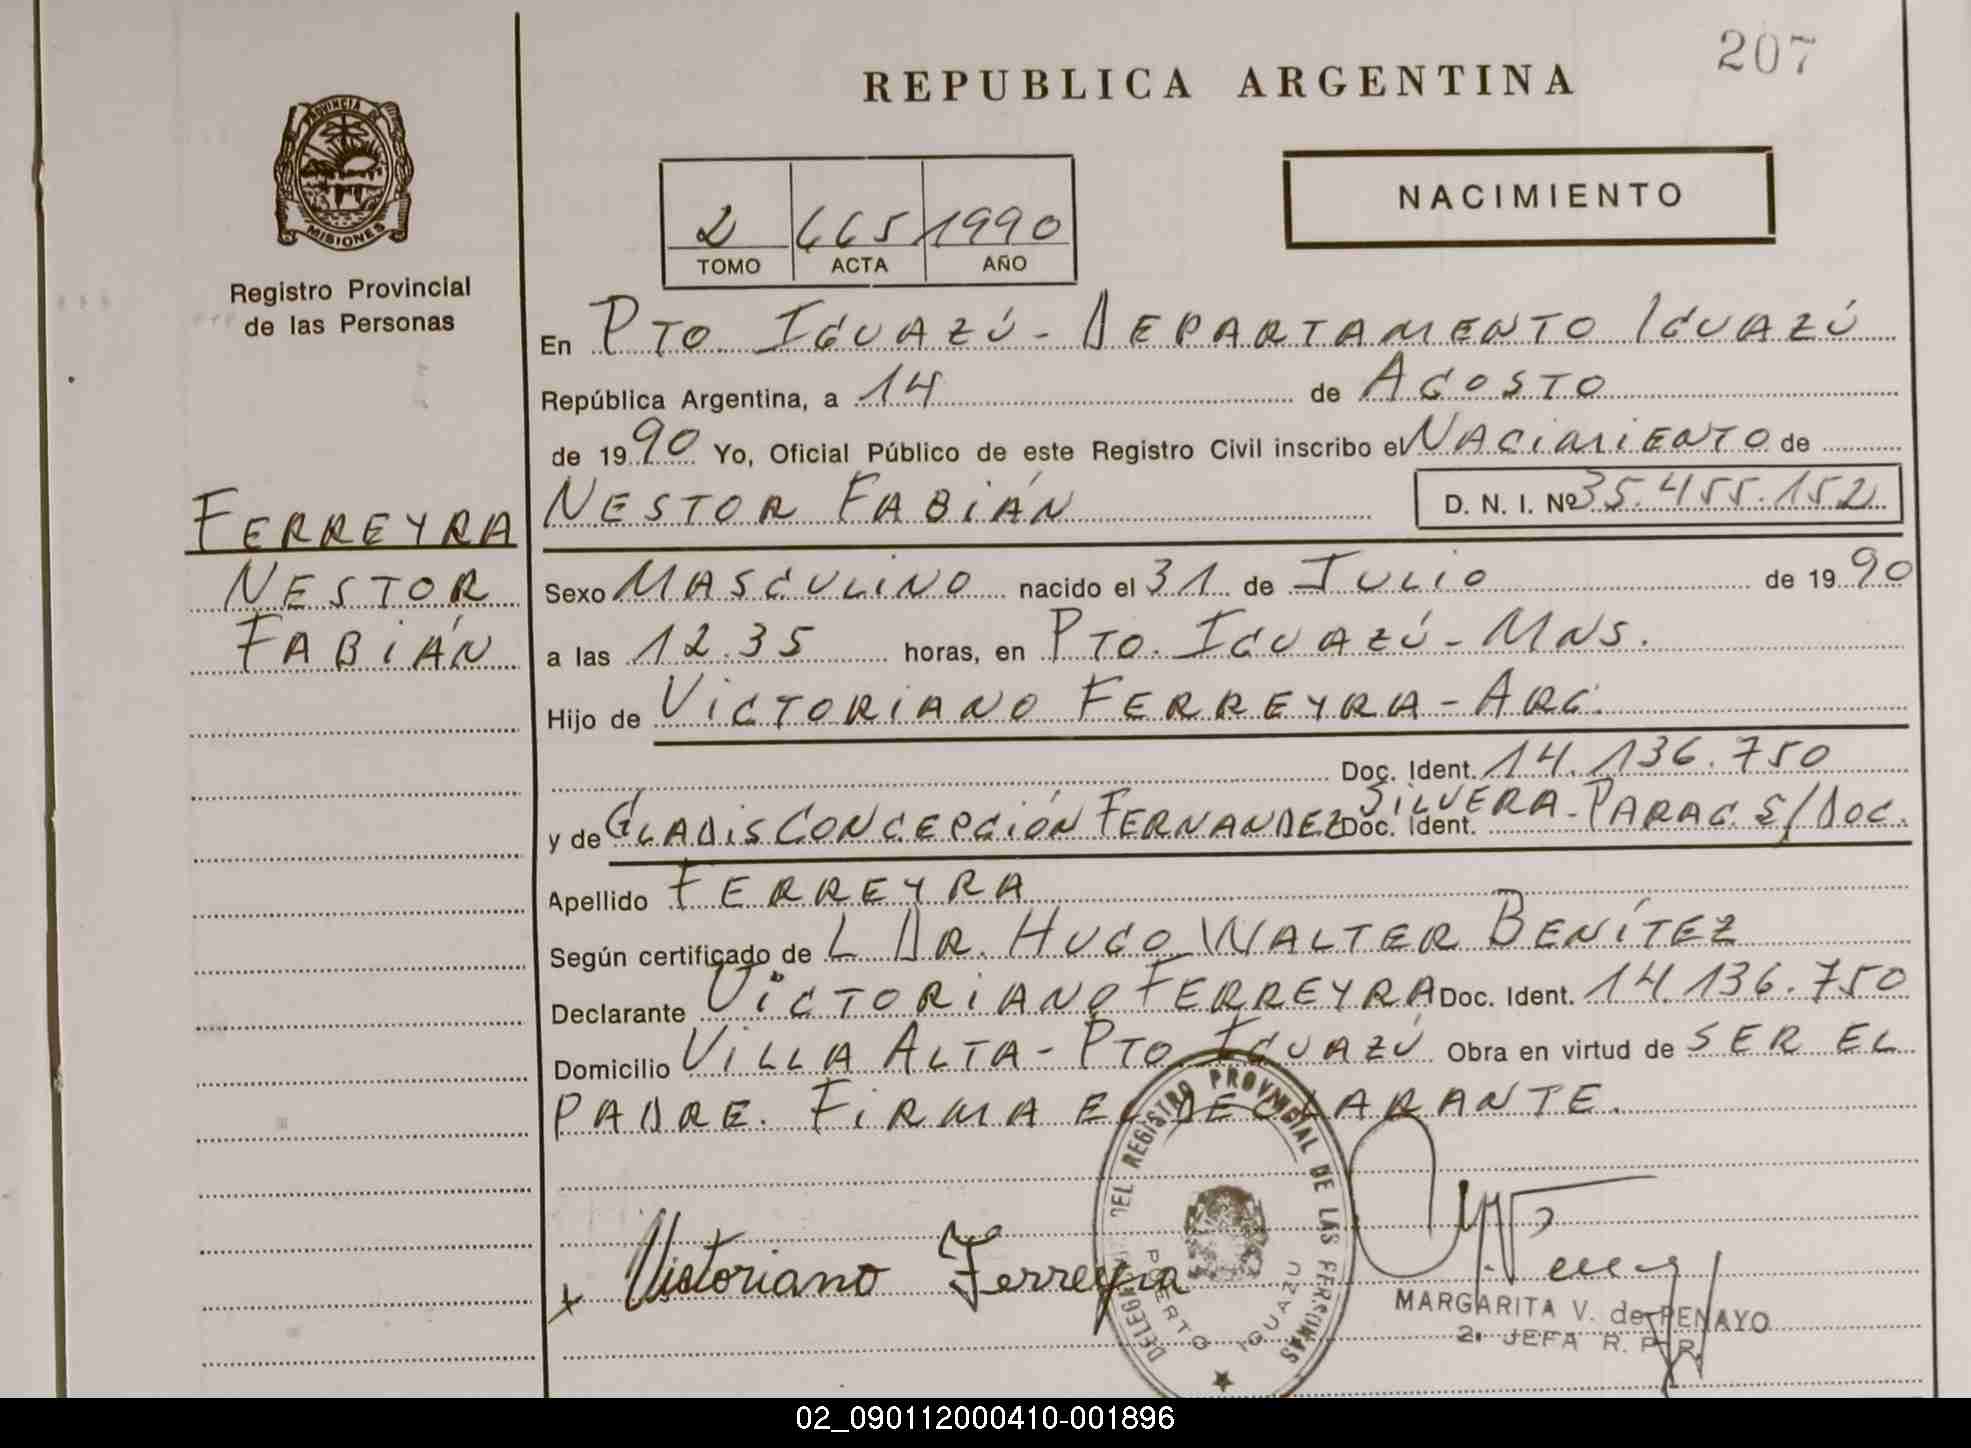 207
REPUBLICA ARGENTINA
PROVINCIA DE
MISIONES
Registro Provincial
de las Personas
NACIMIENTO
2 665 1990
TOMO ACTA AÑO
En PTO IGUAZÚ - DEPARTAMENTO IGUAZÚ
República Argentina, a 14 de AGOSTO
de 1990 Yo, Oficial Público de este Registro Civil inscribo el NACIMIENTO de
FERREYRA
NESTOR
FABIÁN
NESTOR FABIÁN D. N. I. Nº 35.455.152
Sexo MASCULINO nacido el 31 de JULIO de 1990
a las 12.35 horas, en PTO. IGUAZÚ - MNS.
Hijo de VICTORIANO FERREYRA - ARG.
Doc. Ident. 14.136.750
y de GLADIS CONCEPCIÓN FERNANDEZ SILVERA - PARAG. S/DOC.
Doc. Ident.
Apellido FERREYRA
Según certificado de L DR. HUGO WALTER BENÍTEZ
Declarante VICTORIANO FERREYRA Doc. Ident. 14.136.750
Domicilio VILLA ALTA - PTO IGUAZÚ Obra en virtud de SER EL
PADRE. FIRMA EL DECLARANTE.
x Victoriano Ferreyra
DELEGACION DEL REGISTRO PROVINCIAL DE LAS PERSONAS
PUERTO IGUAZU
MARGARITA V. de PENAYO
2ª JEFA R. P. R.
02_090112000410-001896